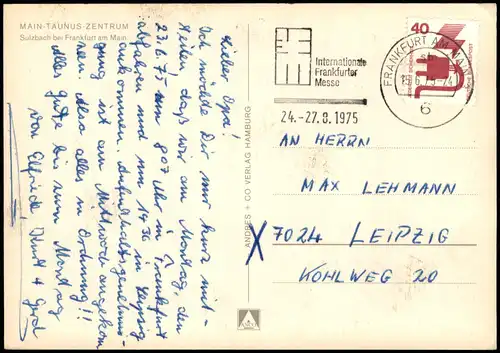 MAIN-TAUNUS-ZENTRUM
Sulzbach bei Frankfurt am Main
Lieber Opa!
Ich möchte Dir nur kurz mit-
teilen, daß wir am Montag, den
23.6.75 um 807 Uhr in Frankfurt
abfahren und um 1436 in Leipzig
ankommen. Aufenthaltsgenehmi-
gung ist am Mittwoch angekom-
men. Also alles in Ordnung!!
Alles Gute bis zum Montag
von Elfriede, Kurt + Gerd
ANDRES + CO VERLAG HAMBURG
Internationale
Frankfurter
Messe
24.-27.8.1975
FRANKFURT AM MAIN
6
40
AN HERRN
MAX LEHMANN
X 7024 LEIPZIG
KOHLWEG 20